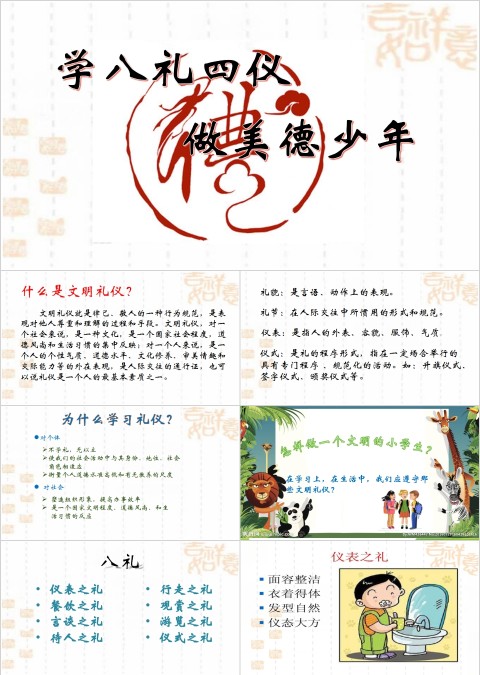 吉祥如意
学八礼四仪
做美德少年
什么是文明礼仪?
文明礼仪就是律己、敬人的一种行为规范，是表
现对他人尊重和理解的过程和手段。文明礼仪，对一
个社会来说，是一种文化，是一个国家社会程度、道
德风尚和生活习惯的集中反映；对一个人来说，是一
个人的个性气质、道德水平、文化修养、审美情趣和
交际能力等的外在表现，是人际交往的通行证，也可
以说礼仪是一个人的最基本素质之一。
礼貌：是言语、动作上的表现。
礼节：在人际交往中所惯用的形式和规范。
仪表：是指人的外表、容貌、服饰、气质.
仪式：是礼的程序形式，指在一定场合举行的
具有专门程序 、规范化的活动。如：升旗仪式、
签字仪式、颁奖仪式等。
为什么学习礼仪?
对个体
不学礼，无以立
使我们的社会活动中与其身份、地位、社会
角色相适应
衡量个人道德水准高低和有无教养的尺度
对社会
塑造组织形象，提高办事效率
是一个国家文明程度、道德风尚、和生
活习惯的反应
怎样做一个文明的小学生?
在学习上，在生活中，我们应遵守那
些文明礼仪?
八礼
仪表之礼
餐饮之礼
言谈之礼
待人之礼
行走之礼
观赏之礼
游览之礼
仪式之礼
仪表之礼
面容整洁
衣着得体
发型自然
仪态大方